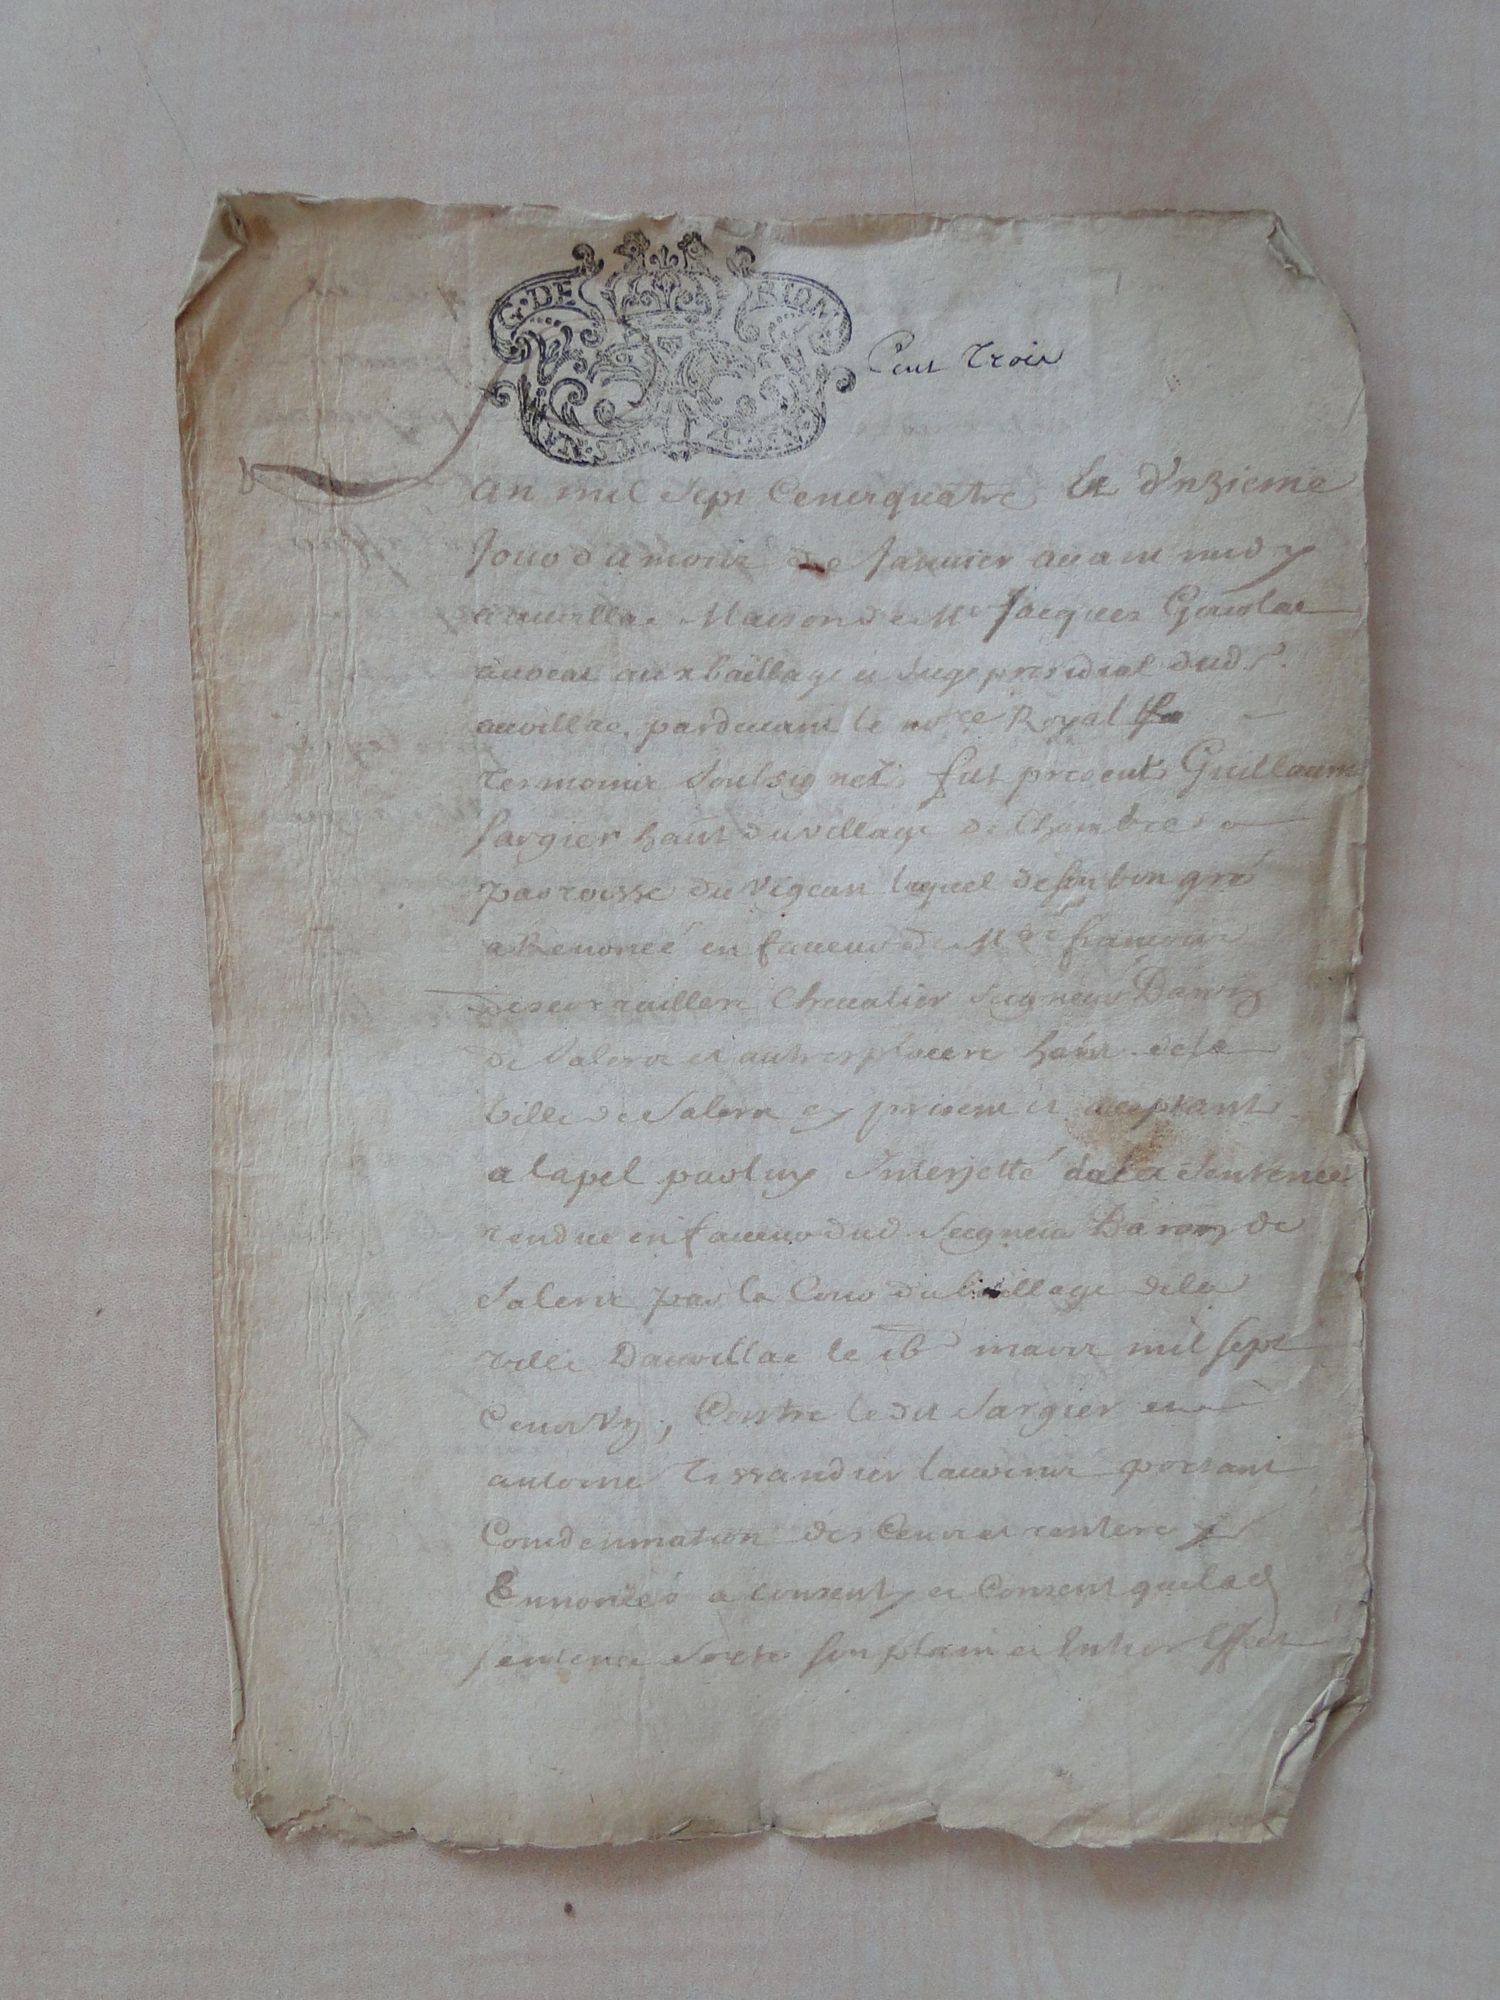 G. DE RIOM
Cent Trois
an mil sept Cens quatre Le Unzieme
Jour du mois de Janvier avant midy
a auvillac Maison de Me Jacques
advocat aux bailliage et siege presidial dud
auvillac, pardevant le nore Royal
tesmoins soubsignes fut present Guillaume
Sargier hant du village de Chambres
parroisse du Vigean lequel de son bon gré
a Renoncé en faveur de Mre francois
descorrailles Chevalier Seigneur Baron
de Salers et autres places hant de la
ville de Salers cy present et aceptant
a lapel par luy Interjetté de la Sentence
rendue en faveur dud Seigneur Baron de
Salers par la Cour du bailliage de la
ville Dauvillac le 16 mars mil sept
Cens Un, Contre le dit Sargier et
antoine Tissandier portant
Condemnation des Cens et rentes y
Ennoncés a consenty et Consent que lad
sentence sorte son plain et Entier Effet